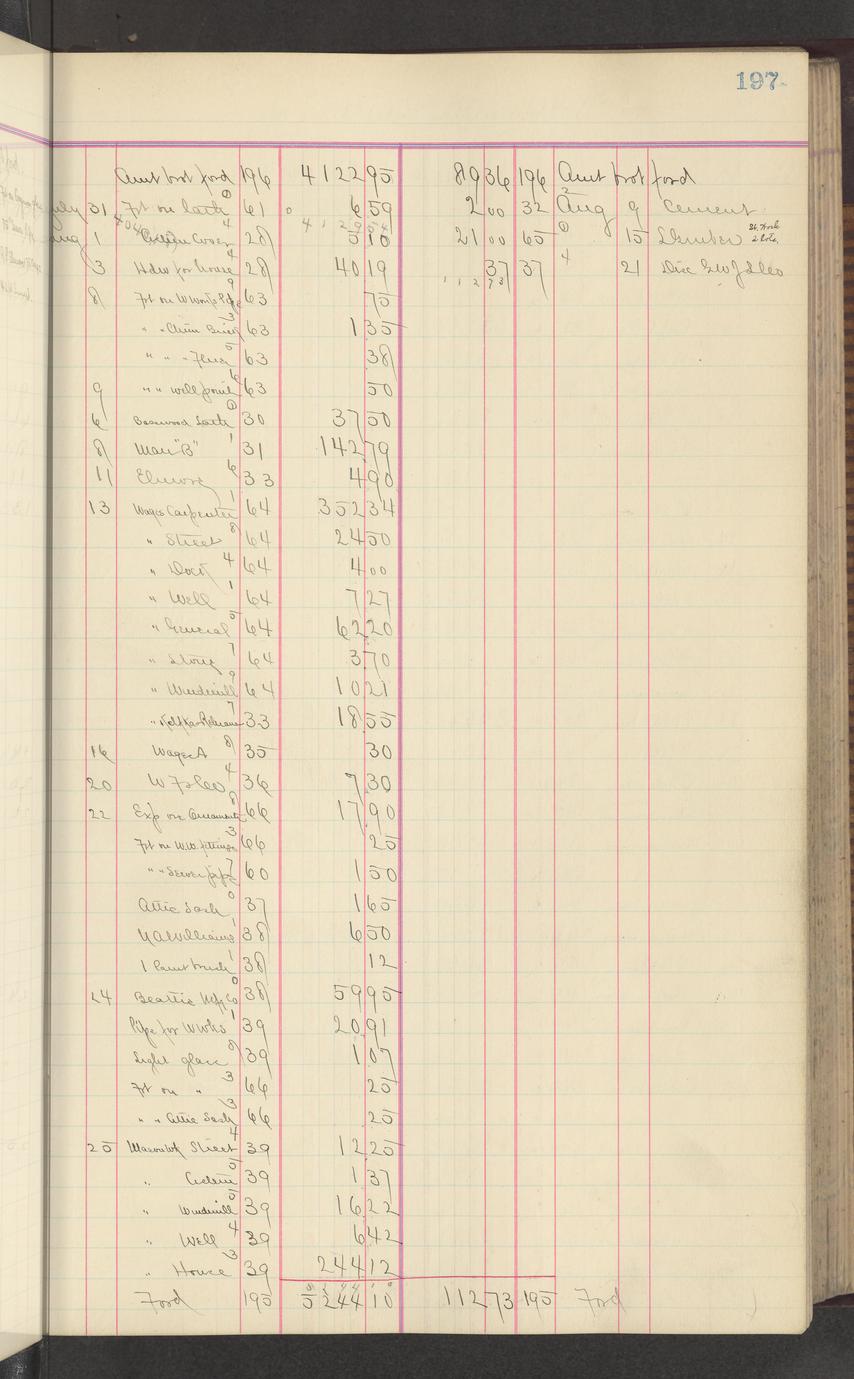 197
Amt brot ford 196 4122 95 89 36 196 Amt brot ford
July 31 Frt on lath 61 6 59 2 00 32 Aug 9 Cement
Aug 1 Cistern Cover 28 5 10 21 00 65 15 Lumber
3 Hdw for house 28 40 19 37 37 21 Disc
8 Frt on 63 75
" " 63 1 35
" " " 63 38
9 " " well point 63 50
6 Basswood Lath 30 37 50
8 Man "B" 31 142 79
11 Elmore 33 4 90
13 Wages Carpenter 64 352 34
" Street 64 24 50
" Dock 64 4 00
" Well 64 7 27
" General 64 62 20
" Stone 64 3 70
" Windmill 64 10 21
" 33 18 55
16 Wages A 35 30
20 36 7 30
22 Exp on 66 17 90
Frt on W.W. fittings 66 25
" " Sewer pipe 60 1 50
Attic Sash 37 1 65
Williams 38 6 50
1 Paint brush 38 12
24 Beattie Mfg Co 38 59 95
Pipe for W Wks 39 20 91
Light glass 39 1 07
Frt on " 66 25
" " Attic Sash 66 25
25 Mason Wk Street 39 12 25
" Cistern 39 1 37
" Windmill 39 16 22
" Well 39 6 42
" House 39 244 12
Ford 195 5244 10 112 73 195 Ford